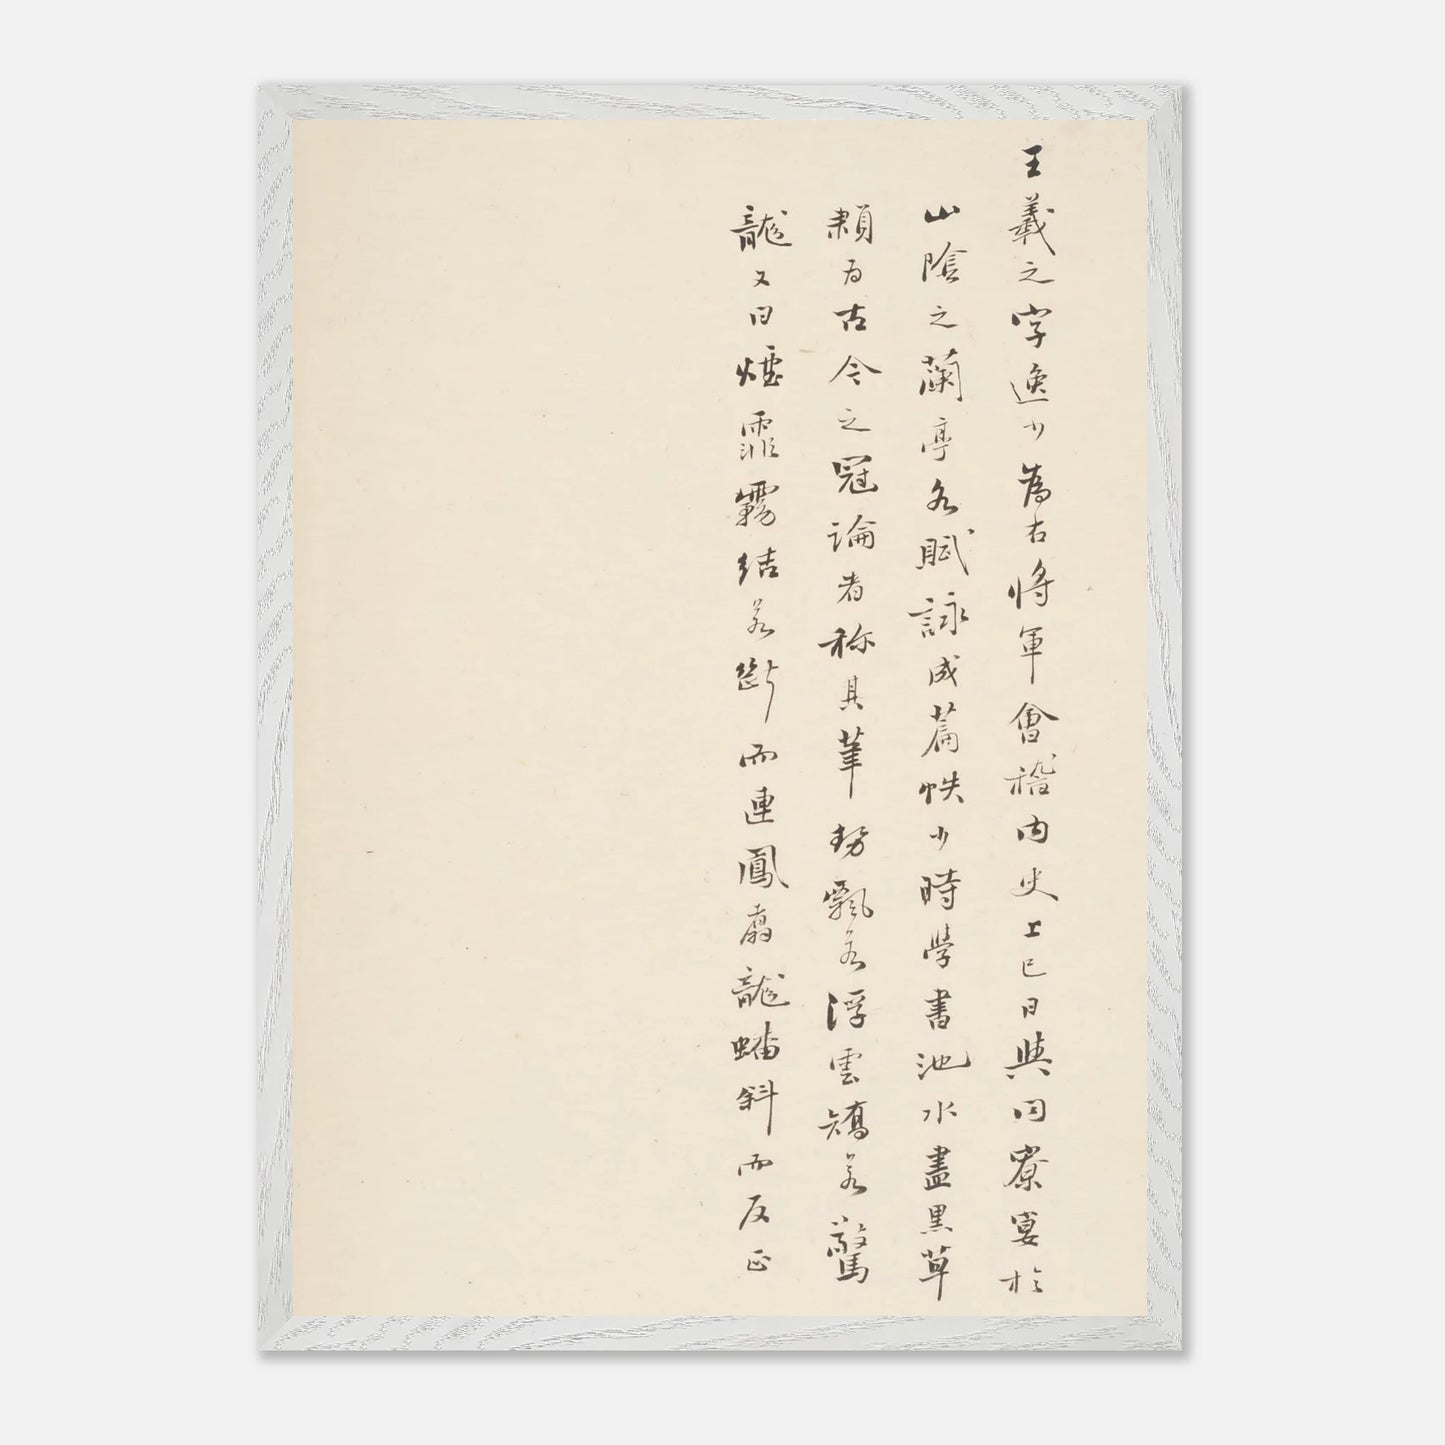 王羲之字逸少為右將軍會稽内史上巳日與同寮宴於
山陰之蘭亭各賦詠成篇帙少時學書池水盡黑草
隸为古今之冠論者称其筆势飄若浮雲矯若驚
龍又曰煙霏霧結若斷而連鳳翥龍蟠斜而反正